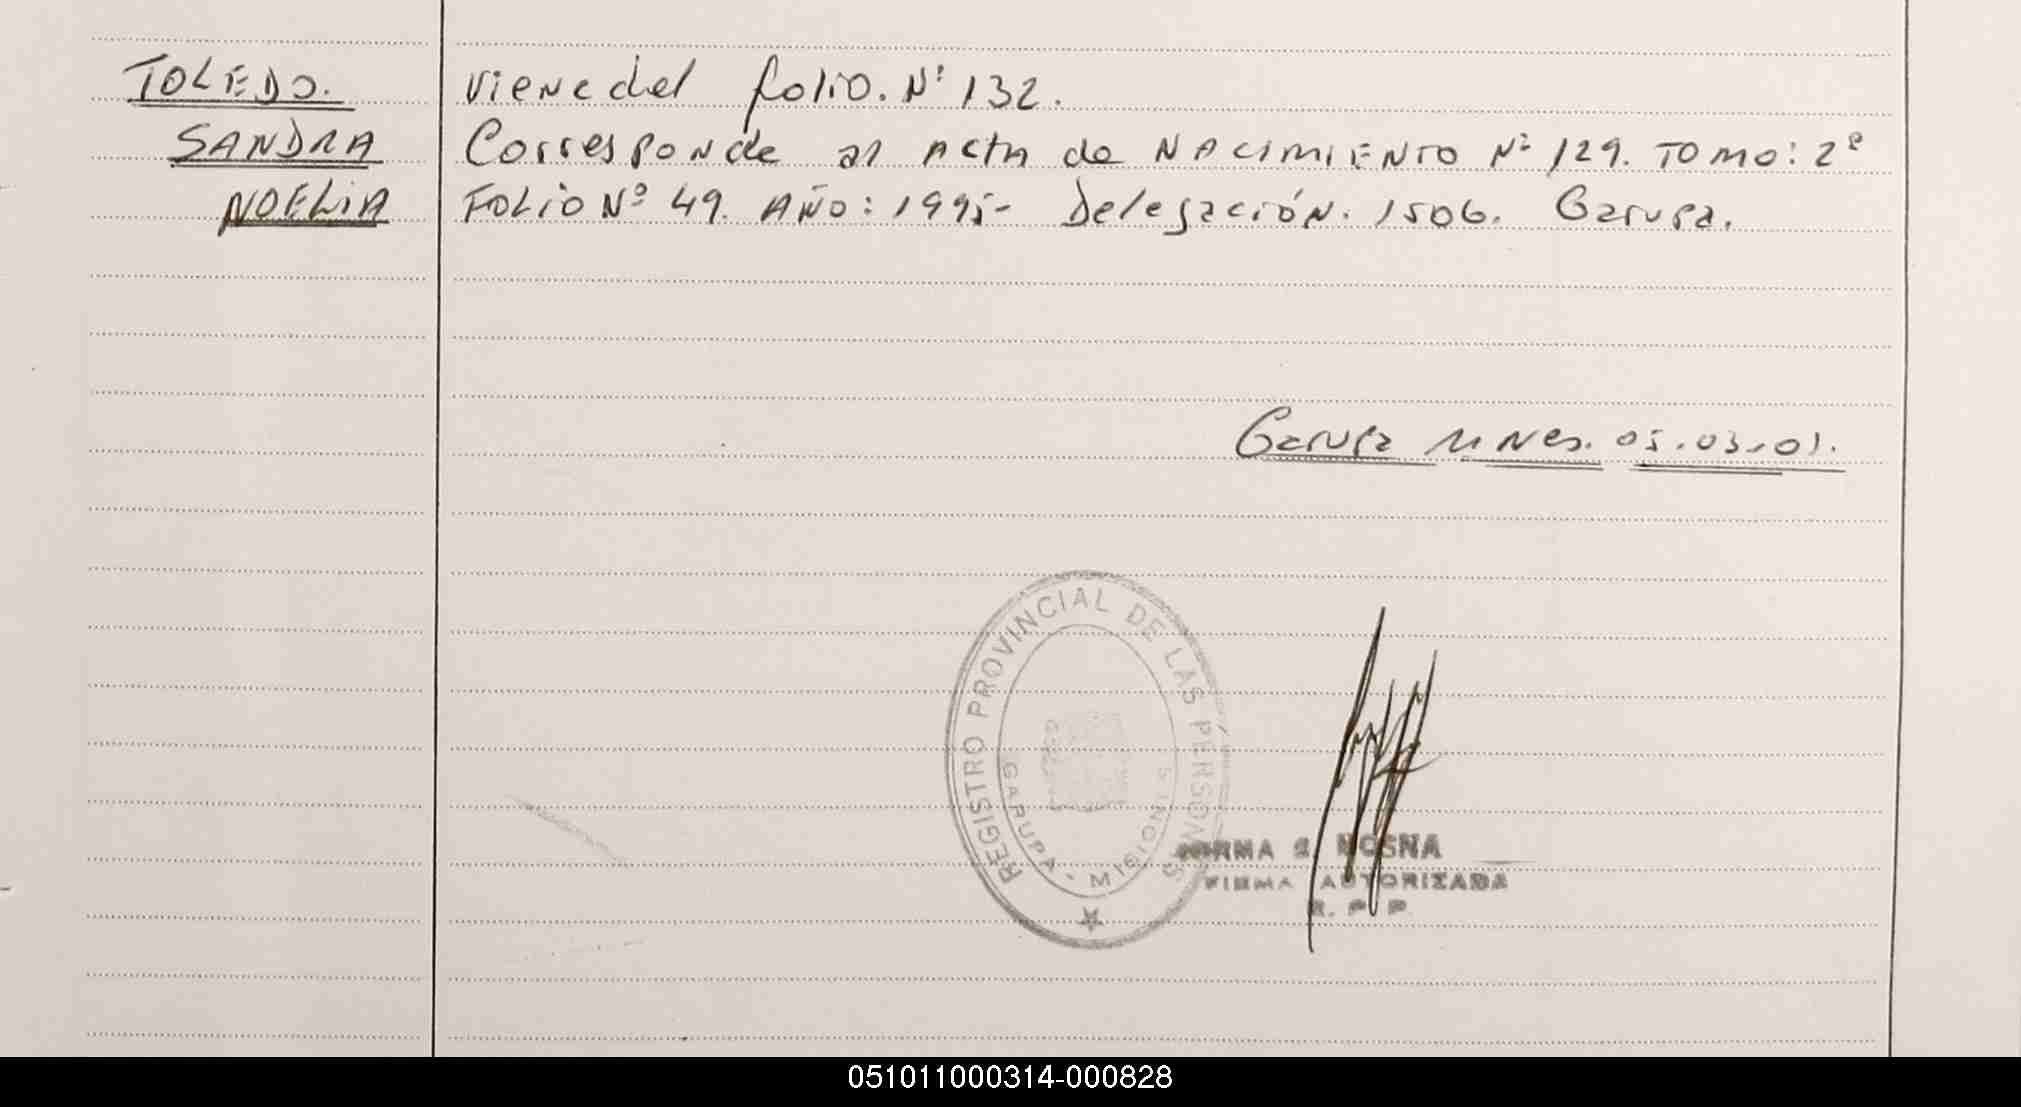 TOLEDO.
SANDRA
NOELIA
Viene del folio. Nº 132.
Corresponde al Acta de NACIMIENTO Nº 129. TOMO: 2º
FOLIO Nº 49. AÑO: 1995- Delegación. 1506. Garupa.
Garupa Mnes. 05.03.01.
REGISTRO PROVINCIAL DE LAS PERSONAS
GARUPA - MISIONES
NORMA
FIRMA AUTORIZADA
R. P. P
051011000314-000828